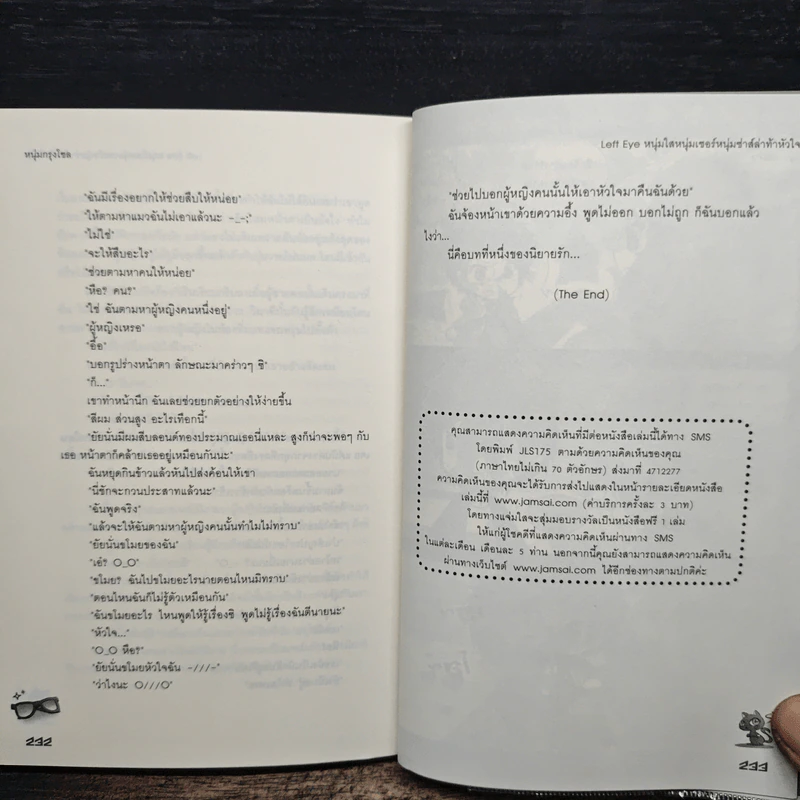 หนุ่มกรุงโซล
"ฉันมีเรื่องอยากให้ช่วยสืบให้หน่อย"
"ให้ตามหาแมวฉันไม่เอาแล้วนะ -_-;"
"ไม่ใช่"
"จะให้สืบอะไร"
"ช่วยตามหาคนให้หน่อย"
"หือ? คน?"
"ใช่ ฉันตามหาผู้หญิงคนหนึ่งอยู่"
"ผู้หญิงเหรอ"
"อื้อ"
"บอกรูปร่างหน้าตา ลักษณะมาคร่าวๆ ซิ"
"ก็..."
เขาทำหน้านึก ฉันเลยช่วยยกตัวอย่างให้ง่ายขึ้น
"สีผม ส่วนสูง อะไรเทือกนี้"
"ยัยนั่นมีผมสีบลอนด์ทองประมาณเธอนี่แหละ สูงก็น่าจะพอๆ กับ
เธอ หน้าตาก็คล้ายเธออยู่เหมือนกันนะ"
ฉันหยุดกินข้าวแล้วหันไปส่งค้อนให้เขา
"นี่ชักจะกวนประสาทแล้วนะ"
"ฉันพูดจริง"
"แล้วจะให้ฉันตามหาผู้หญิงคนนั้นทำไมไม่ทราบ"
"ยัยนั่นขโมยของฉัน"
"เอ๋? O_O"
"ขโมย? ฉันไปขโมยอะไรนายตอนไหนมิทราบ"
"ตอนไหนฉันก็ไม่รู้ตัวเหมือนกัน"
"ฉันขโมยอะไร ไหนพูดให้รู้เรื่องซิ พูดไม่รู้เรื่องฉันตีนายนะ"
"หัวใจ..."
"O_O หือ?"
"ยัยนั่นขโมยหัวใจฉัน -///-"
"ว่าไงนะ O///O"
232
Left Eye หนุ่มใสหนุ่มเซอร์หนุ่มซ่าส์ล่าท้าหัวใจ
"ช่วยไปบอกผู้หญิงคนนั้นให้เอาหัวใจมาคืนฉันด้วย"
ฉันจ้องหน้าเขาด้วยความอึ้ง พูดไม่ออก บอกไม่ถูก ก็ฉันบอกแล้ว
ไงว่า...
นี่คือบทที่หนึ่งของนิยายรัก...
(The End)
คุณสามารถแสดงความคิดเห็นที่มีต่อหนังสือเล่มนี้ได้ทาง SMS
โดยพิมพ์ JLS175 ตามด้วยความคิดเห็นของคุณ
(ภาษาไทยไม่เกิน 70 ตัวอักษร) ส่งมาที่ 4712277
ความคิดเห็นของคุณจะได้รับการส่งไปแสดงในหน้ารายละเอียดหนังสือ
เล่มนี้ที่ www.jamsai.com (ค่าบริการครั้งละ 3 บาท)
โดยทางแจ่มใสจะสุ่มมอบรางวัลเป็นหนังสือฟรี 1 เล่ม
ให้แก่ผู้โชคดีที่แสดงความคิดเห็นผ่านทาง SMS
ในแต่ละเดือน เดือนละ 5 ท่าน นอกจากนี้คุณยังสามารถแสดงความคิดเห็น
ผ่านทางเว็บไซต์ www.jamsai.com ได้อีกช่องทางตามปกติค่ะ
233